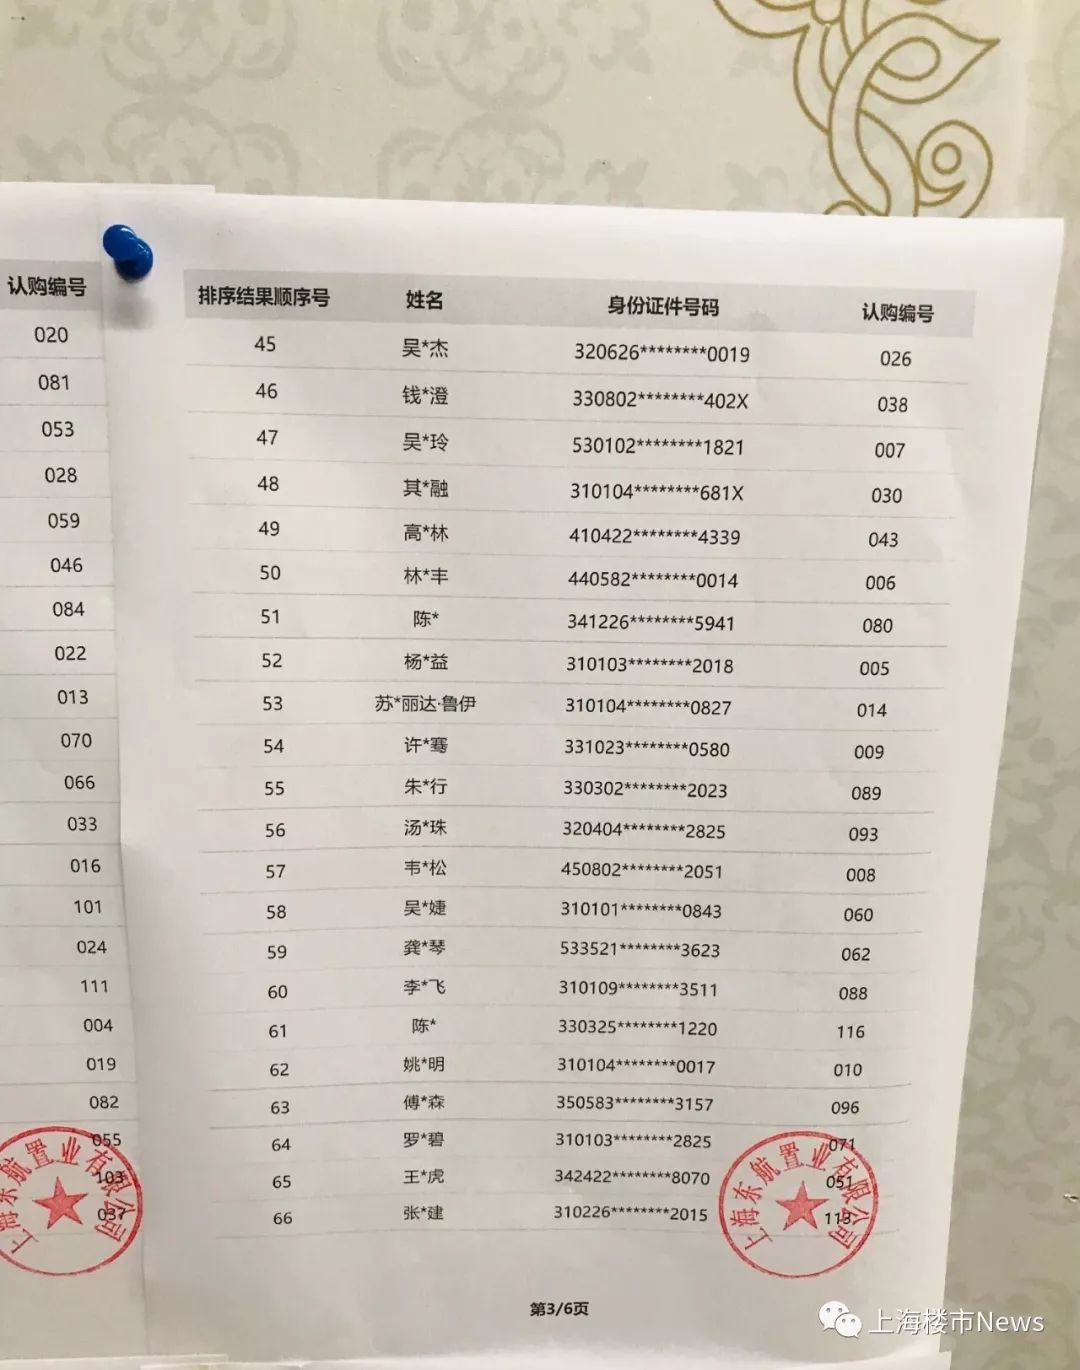 认购编号
020
081
053
028
059
046
084
022
013
070
066
033
016
101
024
111
004
019
082
055
103
037
上海东航置业有限公司
排序结果顺序号 姓名 身份证件号码 认购编号
45 吴*杰 320626********0019 026
46 钱*澄 330802********402X 038
47 吴*玲 530102********1821 007
48 其*融 310104********681X 030
49 高*林 410422********4339 043
50 林*丰 440582********0014 006
51 陈* 341226********5941 080
52 杨*益 310103********2018 005
53 苏*丽达·鲁伊 310104********0827 014
54 许*骞 331023********0580 009
55 朱*行 330302********2023 089
56 汤*珠 320404********2825 093
57 韦*松 450802********2051 008
58 吴*婕 310101********0843 060
59 龚*琴 533521********3623 062
60 李*飞 310109********3511 088
61 陈* 330325********1220 116
62 姚*明 310104********0017 010
63 傅*森 350583********3157 096
64 罗*碧 310103********2825 071
65 王*虎 342422********8070 051
66 张*建 310226********2015 113
上海东航置业有限公司
第3/6页
上海楼市News